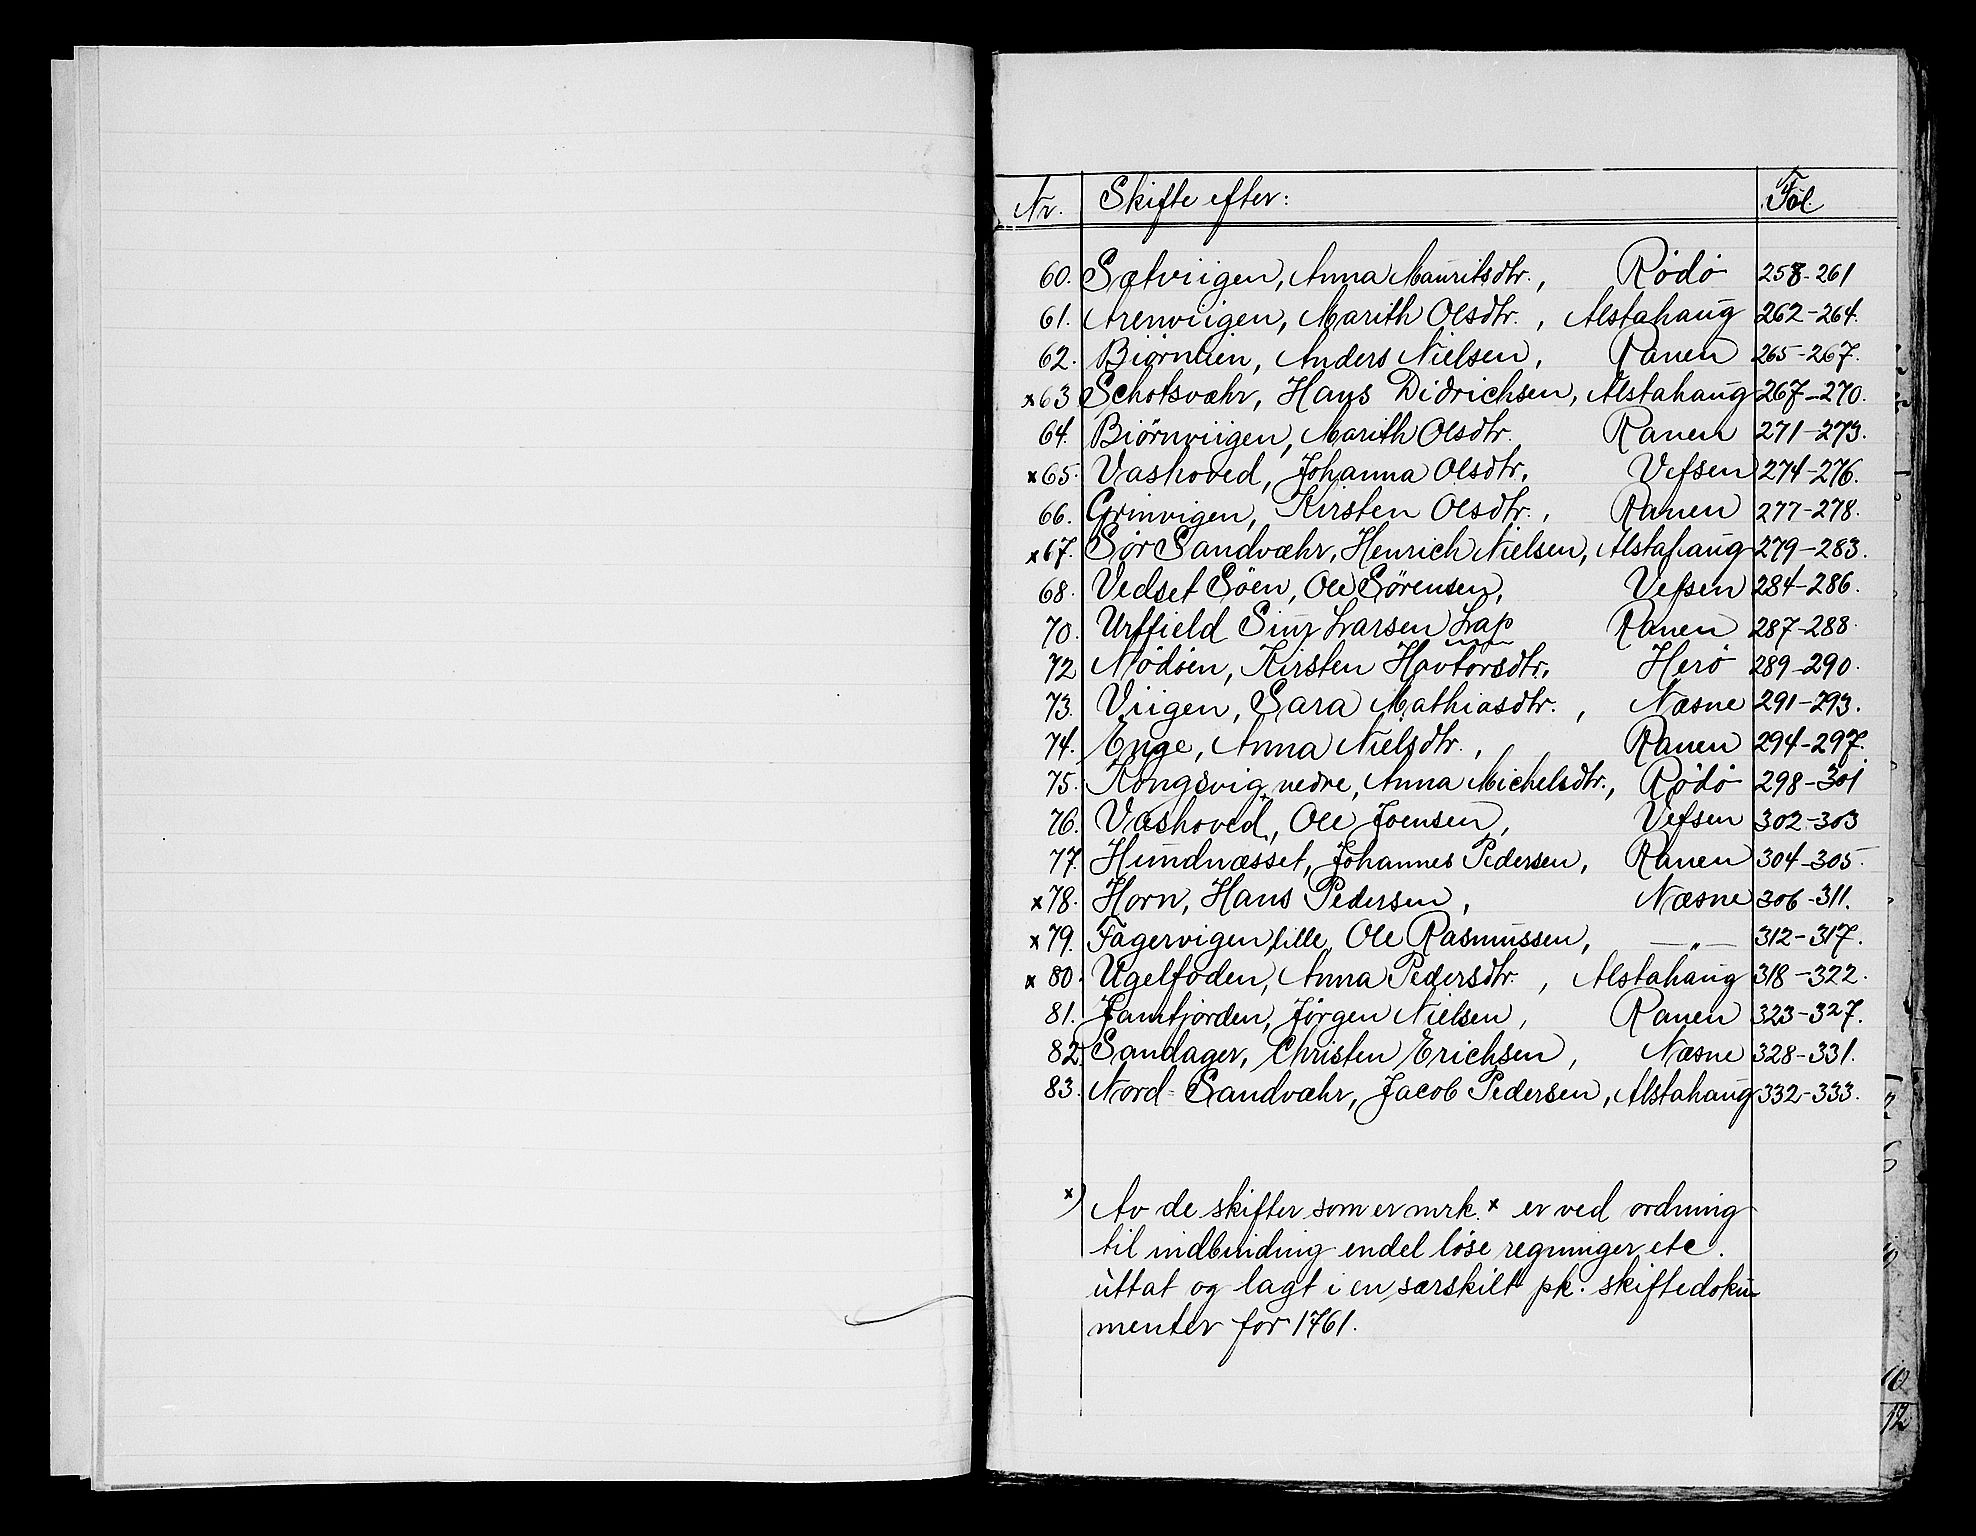 Nr. Skifte efter: Fol.
60. Sætviigen, Anna Mauritsdtr., Rödö 258-261
61. Arenviigen, Marith Olsdtr., Alstahaug 262-264.
62. Biörnlien, Anders Nielsen, Ranen 265-267.
x63 Schotsvæhr, Hans Didrichsen, Alstahaug 267-270.
64. Biörnviigen, Marith Olsdtr. Ranen 271-273.
x65. Vashoved, Johanna Olsdtr., Vefsen 274-276.
66. Grinvigen, Kirsten Olsdtr., Ranen 277-278.
x67. Sör Sandvæhr, Henrich Nielsen, Alstahaug 279-283.
68. Vedset Söen, Ole Sörensen, Vefsen 284-286.
70. Urtfield Larsen Lap Ranen 287-288.
72 Mödöen, Kirsten Havtorsdtr. Herö 289-290.
73. Viigen, Sara Mathiasdtr., Næsne 291-293.
74. Enge, Anna Nielsdtr., Ranen 294-297.
75. Kongsvig nedre, Anna Michelsdtr., Rödö 298-301
76. Vashoved, Ole Joensen, Vefsen 302-303
77. Hundnæsset, Johannes Pedersen, Ranen 304-305.
x78. Horn, Hans Pedersen, Næsne 306-311.
x79. Fagervigen lille, Ole Rasmussen, —"— 312-317.
x80. Ugelfoden, Anna Pedersdtr., Alstahaug 318-322.
81. Jamtjorden, Jörgen Nielsen, Ranen 323-327.
82. Sandager, Christen Erichsen, Næsne 328-331.
83. Nord-Sandvæhr, Jacob Pedersen, Alstahaug 332-333.
x) Av de skifter som er mrk. x er ved ordning
til indbinding endel löse regninger etc.
uttat og lagt i en særskilt pk. skiftedoku-
menter for 1761.
10
12